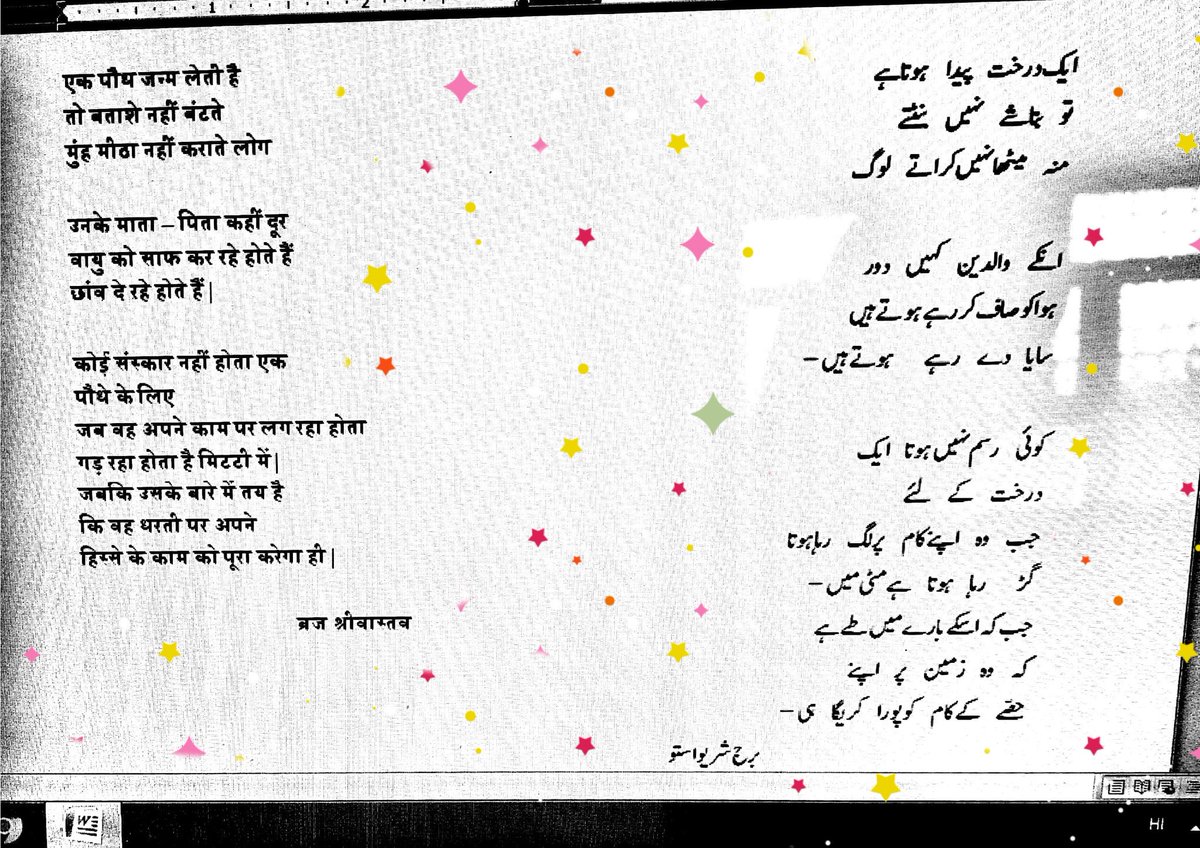 एक पौध जन्म लेती है
तो बताशे नहीं बंटते
मुंह मीठा नहीं कराते लोग
उनके माता – पिता कहीं दूर
वायु को साफ कर रहे होते हैं
छांव दे रहे होते हैं|
कोई संस्कार नहीं होता एक
पौधे के लिए
जब वह अपने काम पर लग रहा होता
गड़ रहा होता है मिटटी में|
जबकि उसके बारे में तय है
कि वह धरती पर अपने
हिस्से के काम को पूरा करेगा ही|
ब्रज श्रीवास्तव
ایک درخت پیدا ہوتا ہے
تو بتاشے نہیں بنٹتے
منہ میٹھا نہیں کراتے لوگ
انکے والدین کہیں دور
ہوا کو صاف کر رہے ہوتے ہیں
سایا دے رہے ہوتے ہیں –
کوئی رسم نہیں ہوتا ایک
درخت کے لئے
جب وہ اپنے کام پر لگ رہا ہوتا
گڑ رہا ہوتا ہے مٹی میں –
جب کہ اسکے بارے میں طے ہے
کہ وہ زمین پر اپنے
حصّے کے کام کو پورا کریگا ہی –
برج شریواستو
1 2
W
HI